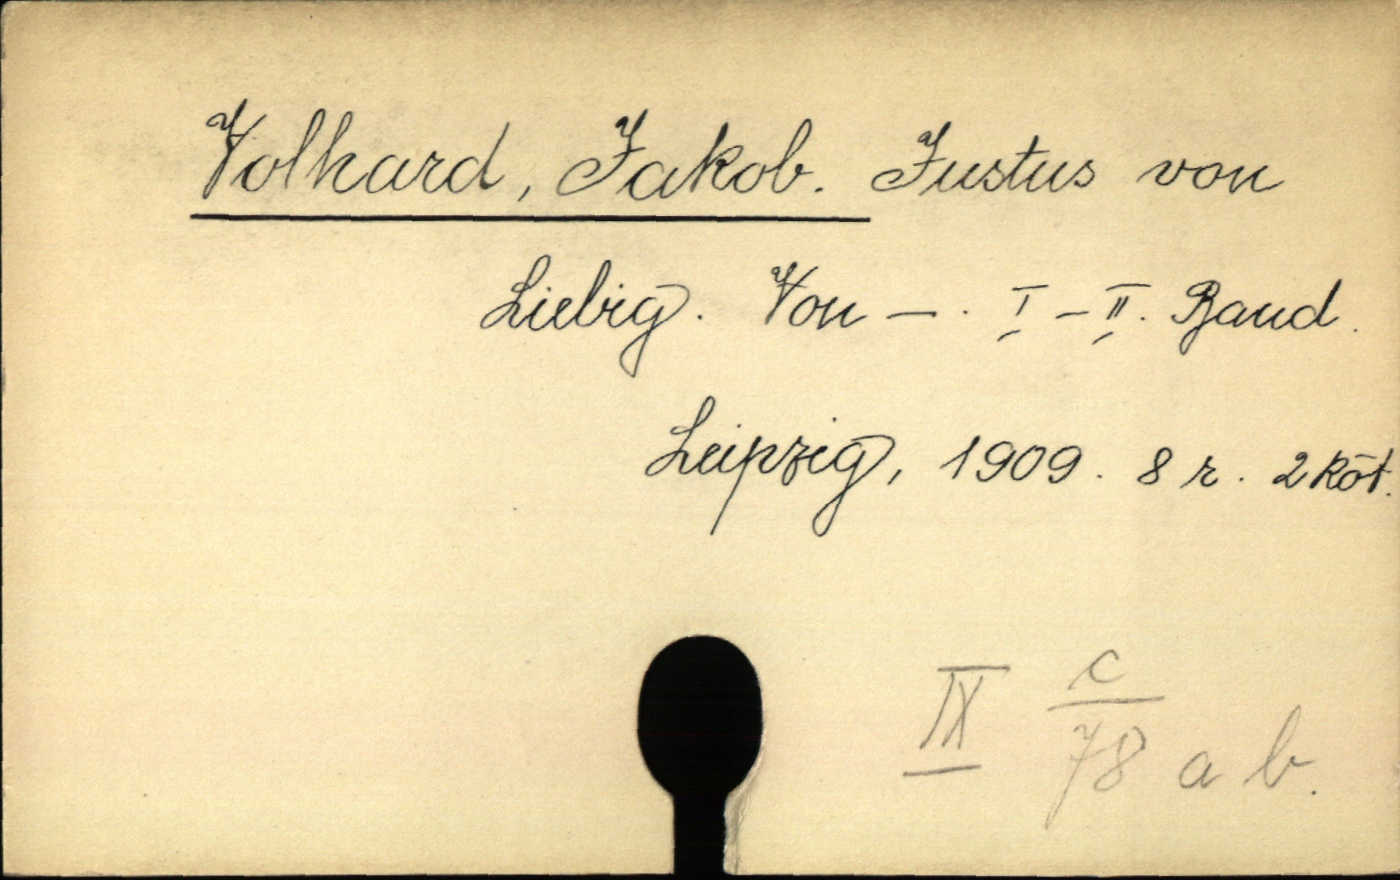 Volhard, Jakob. Justus von
Liebig. Von —. I–II. Band.
Leipzig, 1909. 8 r. 2 köt.
IX c/78 a b.